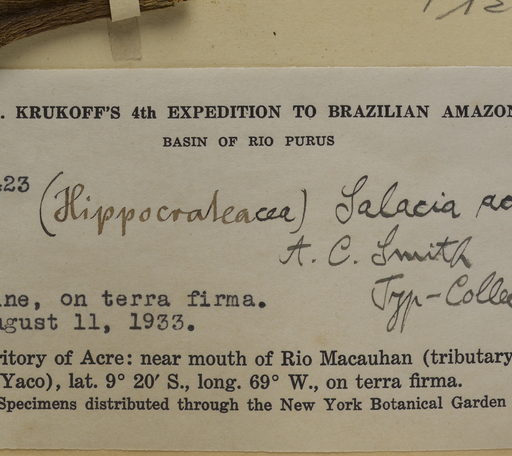 . KRUKOFF'S 4th EXPEDITION TO BRAZILIAN AMAZON
BASIN OF RIO PURUS
23
(Hippocrateacea) Salacia ac
A. C. Smith
Typ-Colle
ne, on terra firma.
gust 11, 1933.
ritory of Acre: near mouth of Rio Macauhan (tributary
Yaco), lat. 9° 20′ S., long. 69° W., on terra firma.
Specimens distributed through the New York Botanical Garden